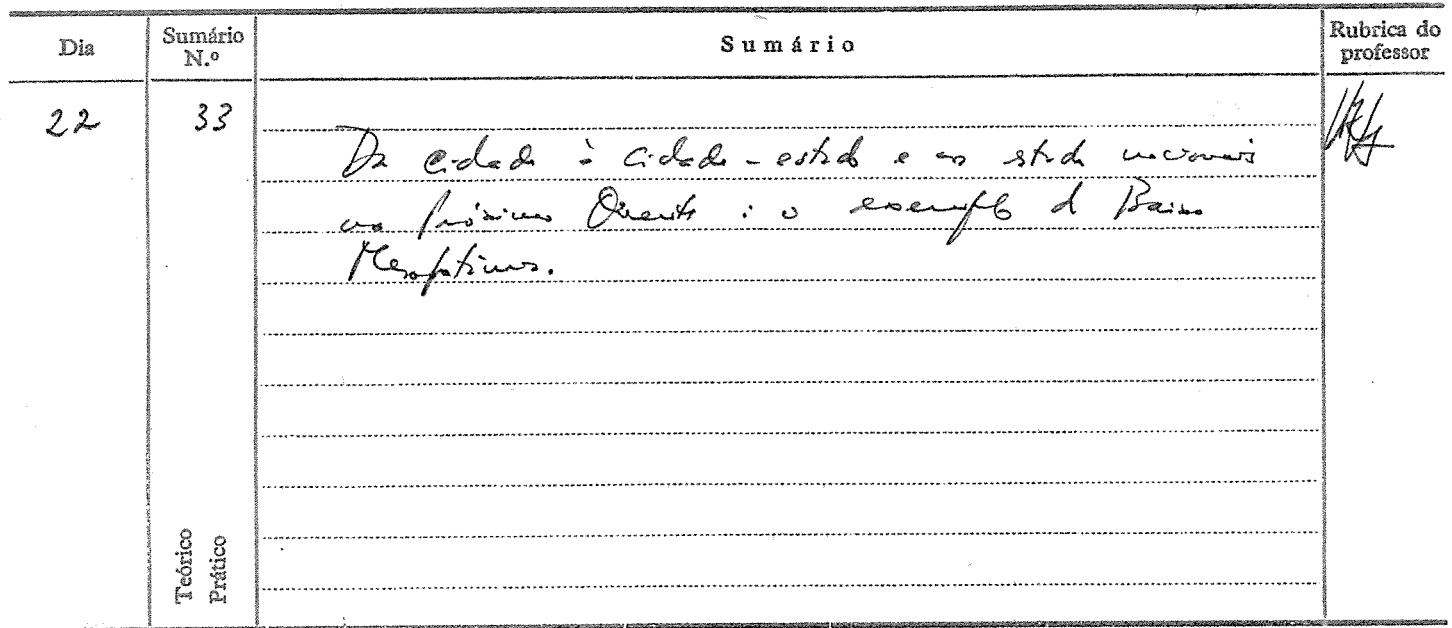 Dia Sumário N.º Sumário Rubrica do professor
22 33
Da cidade à cidade-estado e aos estados nacionais
no Próximo Oriente: o exemplo da Baixa
Mesopotâmia.
Teórico
Prático